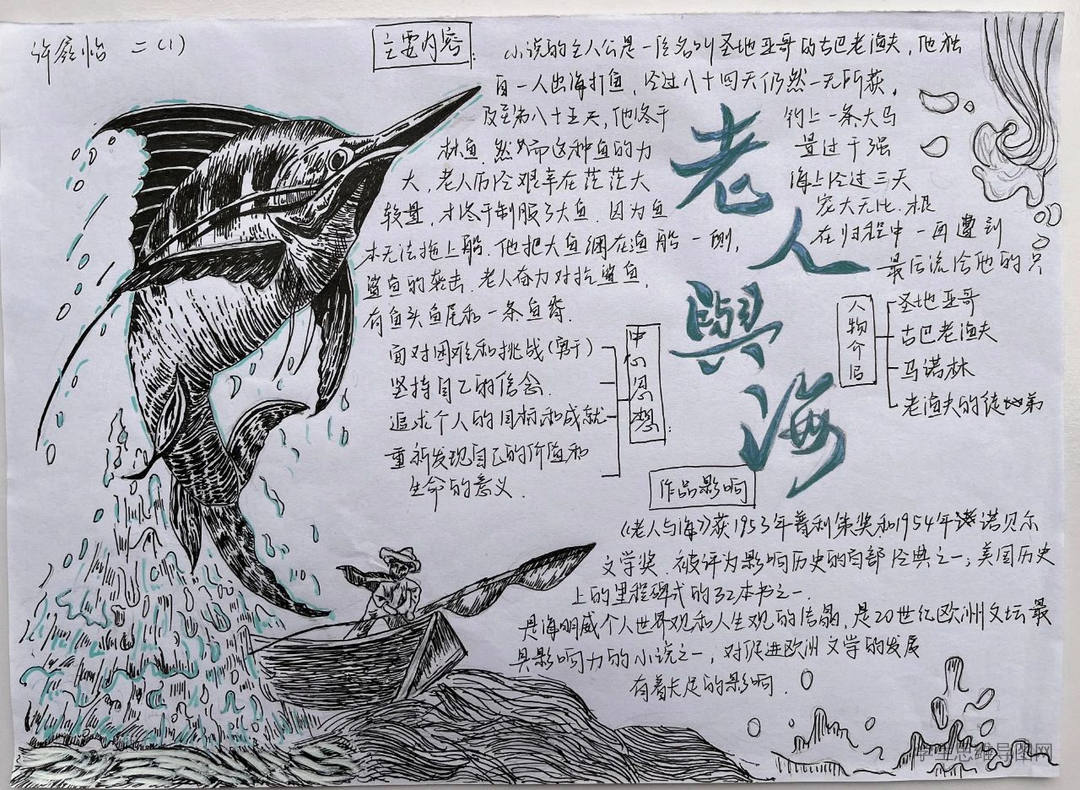 许 怡 二(1)
主要内容:
小说的主人公是一位名叫圣地亚哥的古巴老渔夫,他独
自一人出海打鱼,经过八十四天仍然一无所获,
及至第八十五天,他终于钓上一条大马
林鱼.然而这种鱼的力量过于强
大,老人历经艰辛在茫茫大海上经过三天
较量,才终于制服了大鱼.因为鱼宠大无比.根
本无法拖上船.他把大鱼绑在渔船一侧,在归程中一再遭到
鲨鱼的袭击.老人奋力对抗鲨鱼,最后流给他的只
有鱼头鱼尾和一条鱼脊.
老
人
與
海
中心思想:
面对困难和挑战(勇于)
坚持自己的信念.
追求个人的目标和成就
重新发现自己的价值和
生命的意义.
人物介绍
圣地亚哥
古巴老渔夫
马诺林
老渔夫的徒弟
作品影响
《老人与海》获1953年普利策奖和1954年诺贝尔
文学奖.被评为影响历史的百部经典之一;美国历史
上的里程碑式的32本书之一.
是海明威个人世界观和人生观的结晶,是20世纪欧洲文坛最
具影响力的小说之一,对促进欧洲文学的发展
有着大足的影响.
思维导图网